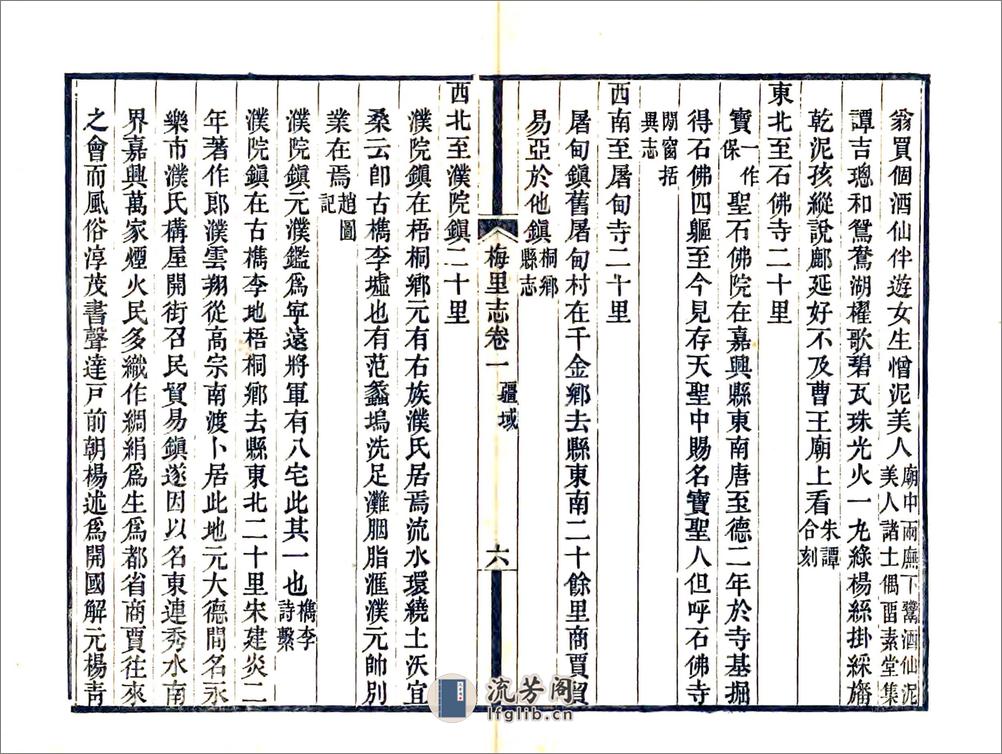 翁買個酒仙伴遊女生憎泥美人廟中兩廡下鬻酒仙泥美人諸土偶䤧素堂集
譚吉璁和鴛鴦湖櫂歌碧瓦珠光火一丸綠楊絲掛綵旛
乾泥孩縱說鄜延好不及曹王廟上看朱譚合刻
東北至石佛寺二十里
寶一作保聖石佛院在嘉興縣東南唐至德二年於寺基掘
得石佛四軀至今見存天聖中賜名寶聖人但呼石佛寺
閒窗括異志
西南至屠甸寺二十里
屠甸鎮舊屠甸村在千金鄉去縣東南二十餘里商賈貿
易亞於他鎮桐鄉縣志
梅里志卷一 疆域 六
西北至濮院鎮二十里
濮院鎮在梧桐鄉元有右族濮氏居焉流水環繞土沃宜
桑云卽古檇李墟也有范蠡塢洗足灘胭脂滙濮元帥別
業在焉趙圖記
濮院鎮元濮鑑爲寧遠將軍有八宅此其一也檇李詩繫
濮院鎮在古檇李地梧桐鄉去縣東北二十里宋建炎二
年著作郎濮雲翔從高宗南渡卜居此地元大德間名永
樂市濮氏構屋開街召民貿易鎮遂因以名東連秀水南
界嘉興萬家煙火民多織作綢絹爲生爲都省商賈往來
之會而風俗淳茂書聲達戸前朝楊述爲開國解元楊靑
流芳阁
lfglib.cn